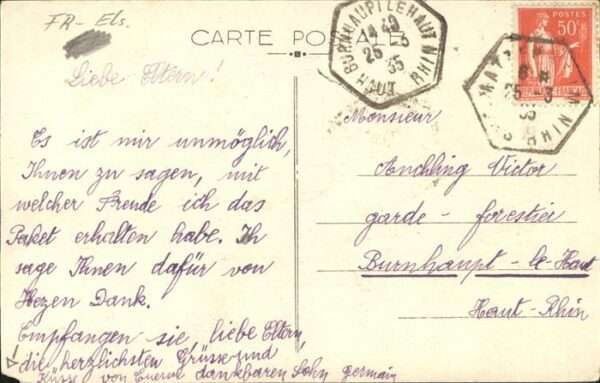 FR-Els.
CARTE POSTALE
Liebe Eltern!
Es ist mir unmöglich,
Ihnen zu sagen, mit
welcher Freude ich das
Paket erhalten habe. Ih
sage Ihnen dafür von
Hezen Dank.
Empfangen sie, liebe Eltern,
die herzlichsten Grüsse und
Küsse von Euerem dankbaren Sohn Germain
BURNHAUPT LE HAUT
14 40
25 -3
35
HAUT RHIN
POSTES
50c
25 -3
35
RHIN
Monsieur
Anchling Victor
garde - forestier
Burnhaupt - le - Haut
Haut - Rhin